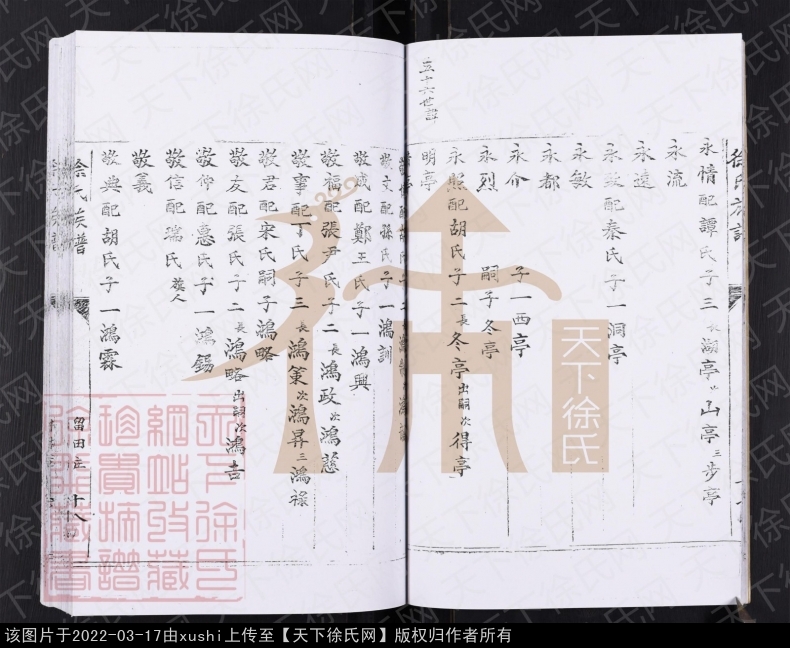 五十六世譜
永情配譚氏子三長湖亭次山亭三步亭
永流
永遠
永致配秦氏子一洞亭
永敏
永都
永介 子一西亭
永烈 嗣子冬亭
永熙配胡氏子二長冬亭出嗣次得亭
明亭
敬文配孫氏子一鴻訓
敬成配鄭王氏子一鴻興
敬福配張尹氏子二長鴻政次鴻慈
敬事配丁氏子三長鴻策次鴻昇三鴻祿
敬君配宋氏嗣子鴻略
敬友配張氏子二長鴻略出嗣次鴻吉
敬仲配惠氏子一鴻錫
敬信配瑞氏旗人
敬義
敬典配胡氏子一鴻霖
徐氏族譜
留田庄
十八
天下徐氏
天下徐氏網站收藏珍貴極譜
天下徐氏网
该图片于2022-03-17由xushi上传至【天下徐氏网】版权归作者所有